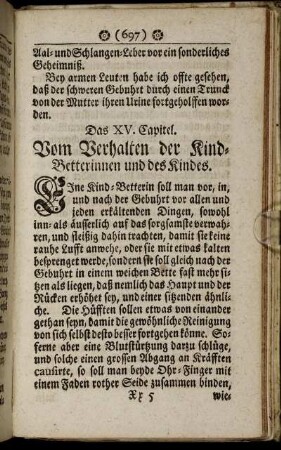 (697)
Aal- und Schlangen-Leber vor ein sonderliches
Geheimniß.
Bey armen Leuten habe ich offte gesehen,
daß der schweren Gebuhrt durch einen Trunck
von der Mutter ihren Urine fortgeholffen wor-
den.
Das XV. Capitel.
Vom Verhalten der Kind-
Betterinnen und des Kindes.
EIne Kind-Betterin soll man vor, in,
und nach der Gebuhrt vor allen und
jeden erkältenden Dingen, sowohl
inn- als äusserlich auf das sorgsamste verwah-
ren, und fleißig dahin trachten, damit sie keine
rauhe Lufft anwehe, oder sie mit etwas kalten
besprenget werde, sondern sie soll gleich nach der
Gebuhrt in einem weichen Bette fast mehr si-
tzen als liegen, daß nemlich das Haupt und der
Rücken erhöhet sey, und einer sitzenden ähnli-
che. Die Hüfften sollen etwas von einander
gethan seyn, damit die gewöhnliche Reinigung
von sich selbst desto besser fortgehen könne. So-
ferne aber eine Blutstürtzung darzu schlüge,
und solche einen grossen Abgang an Kräfften
causirte, so soll man beyde Ohr-Finger mit
einem Faden rother Seide zusammen binden,
Xx 5 wie-